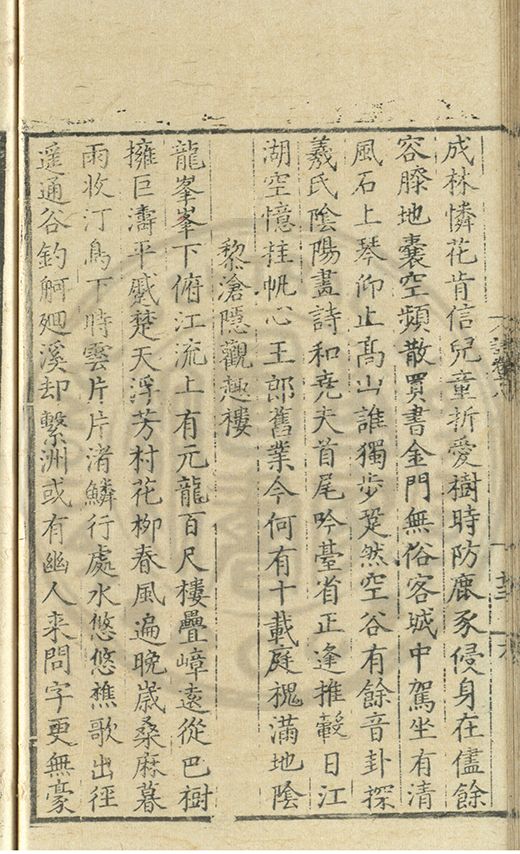 成林憐花肯信兒童折愛樹時防鹿豕侵身在儘餘
容膝地囊空頻散買書金門無俗客城中駕坐有清
風石上琴仰止髙山誰獨步跫然空谷有餘音卦探
羲氏陰陽畫詩和堯夫首尾吟臺省正逢推轂日江
湖空憶挂帆心王郎舊業今何有十載庭槐滿地陰
黎滄隱觀趣樓
龍峯峯下俯江流上有元龍百尺樓疊嶂遠從巴樹
擁巨濤平蹙楚天浮芳村花柳春風遍晩歲桑麻暮
雨收汀鳥下時雲片片渚鱗行處水悠悠樵歌出徑
遥通谷釣舸廻溪却繫洲或有幽人来問字更無豪